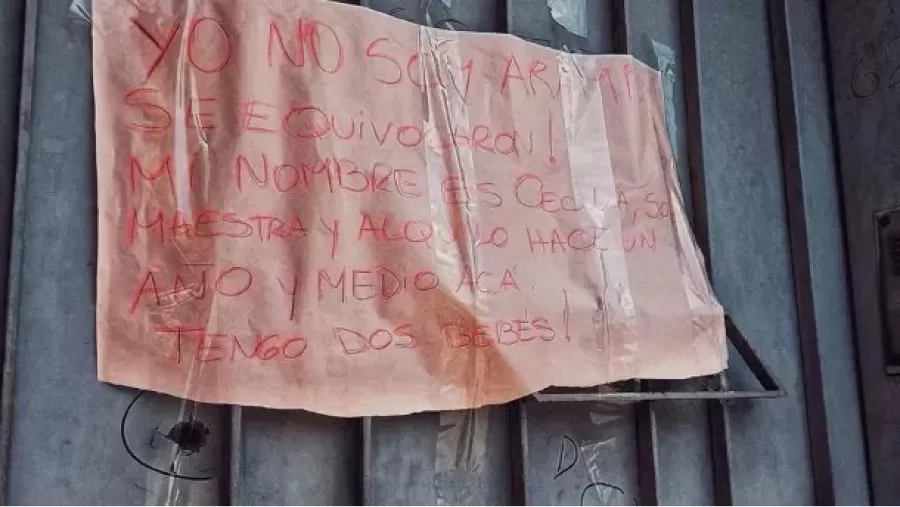 YO NO SOY
SE EQUIVOCARON!
MI NOMBRE ES CECILIA, SOY
MAESTRA Y ALQUILO HACE UN
AÑO Y MEDIO ACÁ.
TENGO DOS BEBÉS!
D